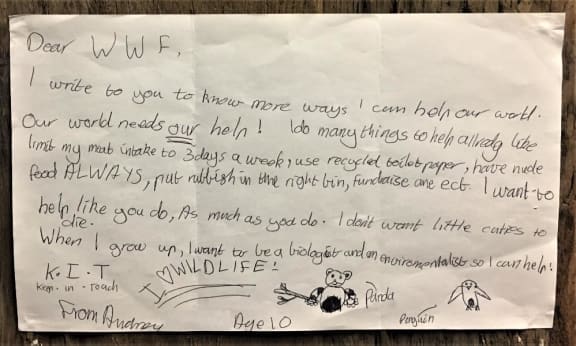 Dear WWF,
I write to you to know more ways I can help our world.
Our world needs our help! I do many things to help allredy like
limit my meat intake to 3 days a week, use recycled toilet paper, have nude
food ALWAYS, put rubbish in the right bin, fundraise are ect. I want to
help like you do, As much as you do. I don't want little cuties to
die.
When I grow up, I want to be a biologist and an enviromentalist so I can help!
K.I.T I ♡ WILDLIFE!
Keep · in · toach
Panda
Penguin
From Audrey Age 10